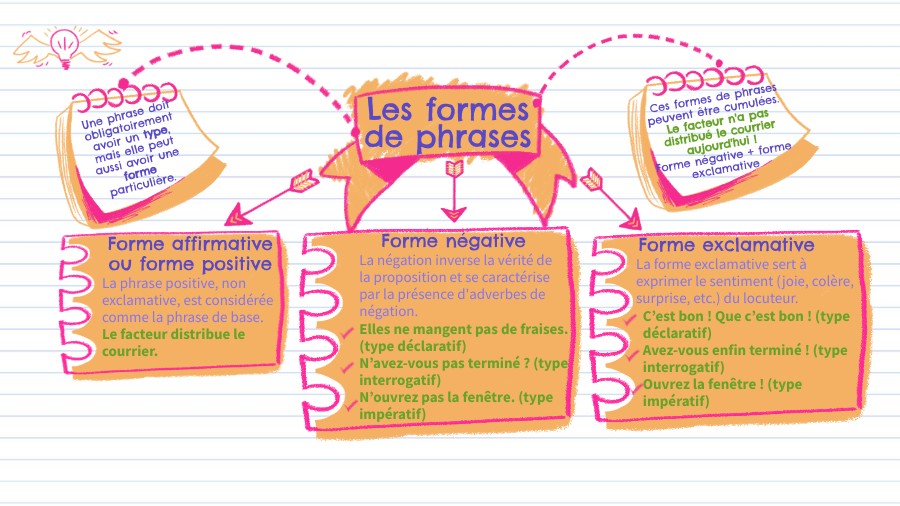 Les formes
de phrases
Une phrase doit
obligatoirement
avoir un type,
mais elle peut
aussi avoir une
forme
particulière.
Ces formes de phrases
peuvent être cumulées.
Le facteur n'a pas
distribué le courrier
aujourd'hui !
Forme négative + forme
exclamative
Forme affirmative
ou forme positive
La phrase positive, non
exclamative, est considérée
comme la phrase de base.
Le facteur distribue le
courrier.
Forme négative
La négation inverse la vérité de
la proposition et se caractérise
par la présence d'adverbes de
négation.
Elles ne mangent pas de fraises.
(type déclaratif)
N'avez-vous pas terminé ? (type
interrogatif)
N'ouvrez pas la fenêtre. (type
impératif)
Forme exclamative
La forme exclamative sert à
exprimer le sentiment (joie, colère,
surprise, etc.) du locuteur.
C'est bon ! Que c'est bon ! (type
déclaratif)
Avez-vous enfin terminé ! (type
interrogatif)
Ouvrez la fenêtre ! (type
impératif)